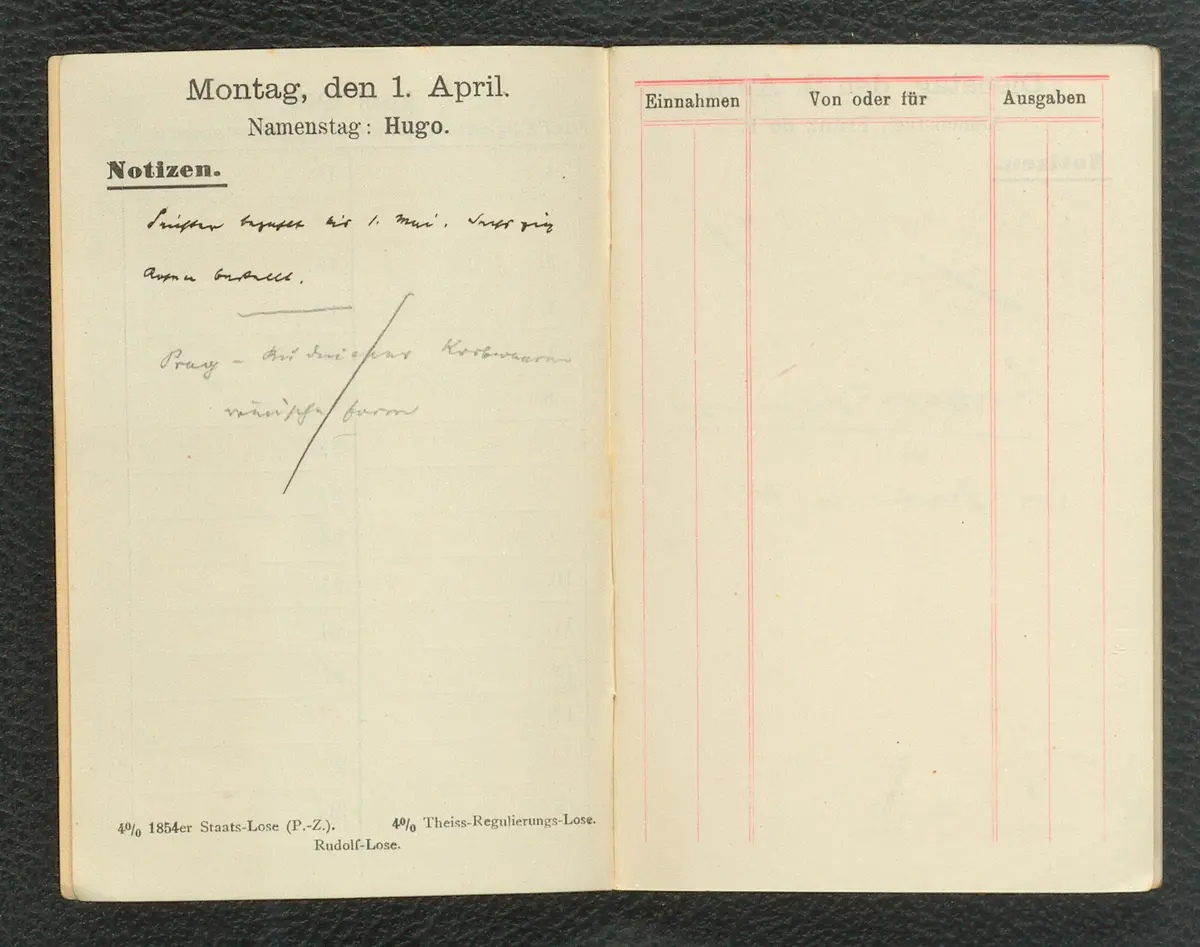 Montag, den 1. April.
Namenstag: Hugo.
Notizen.
bezahlt bis 1. Mai.
bestellt.
Prag – Korbwaren
Form
4% 1854er Staats-Lose (P.-Z.). 4% Theiss-Regulierungs-Lose.
Rudolf-Lose.
Einnahmen Von oder für Ausgaben